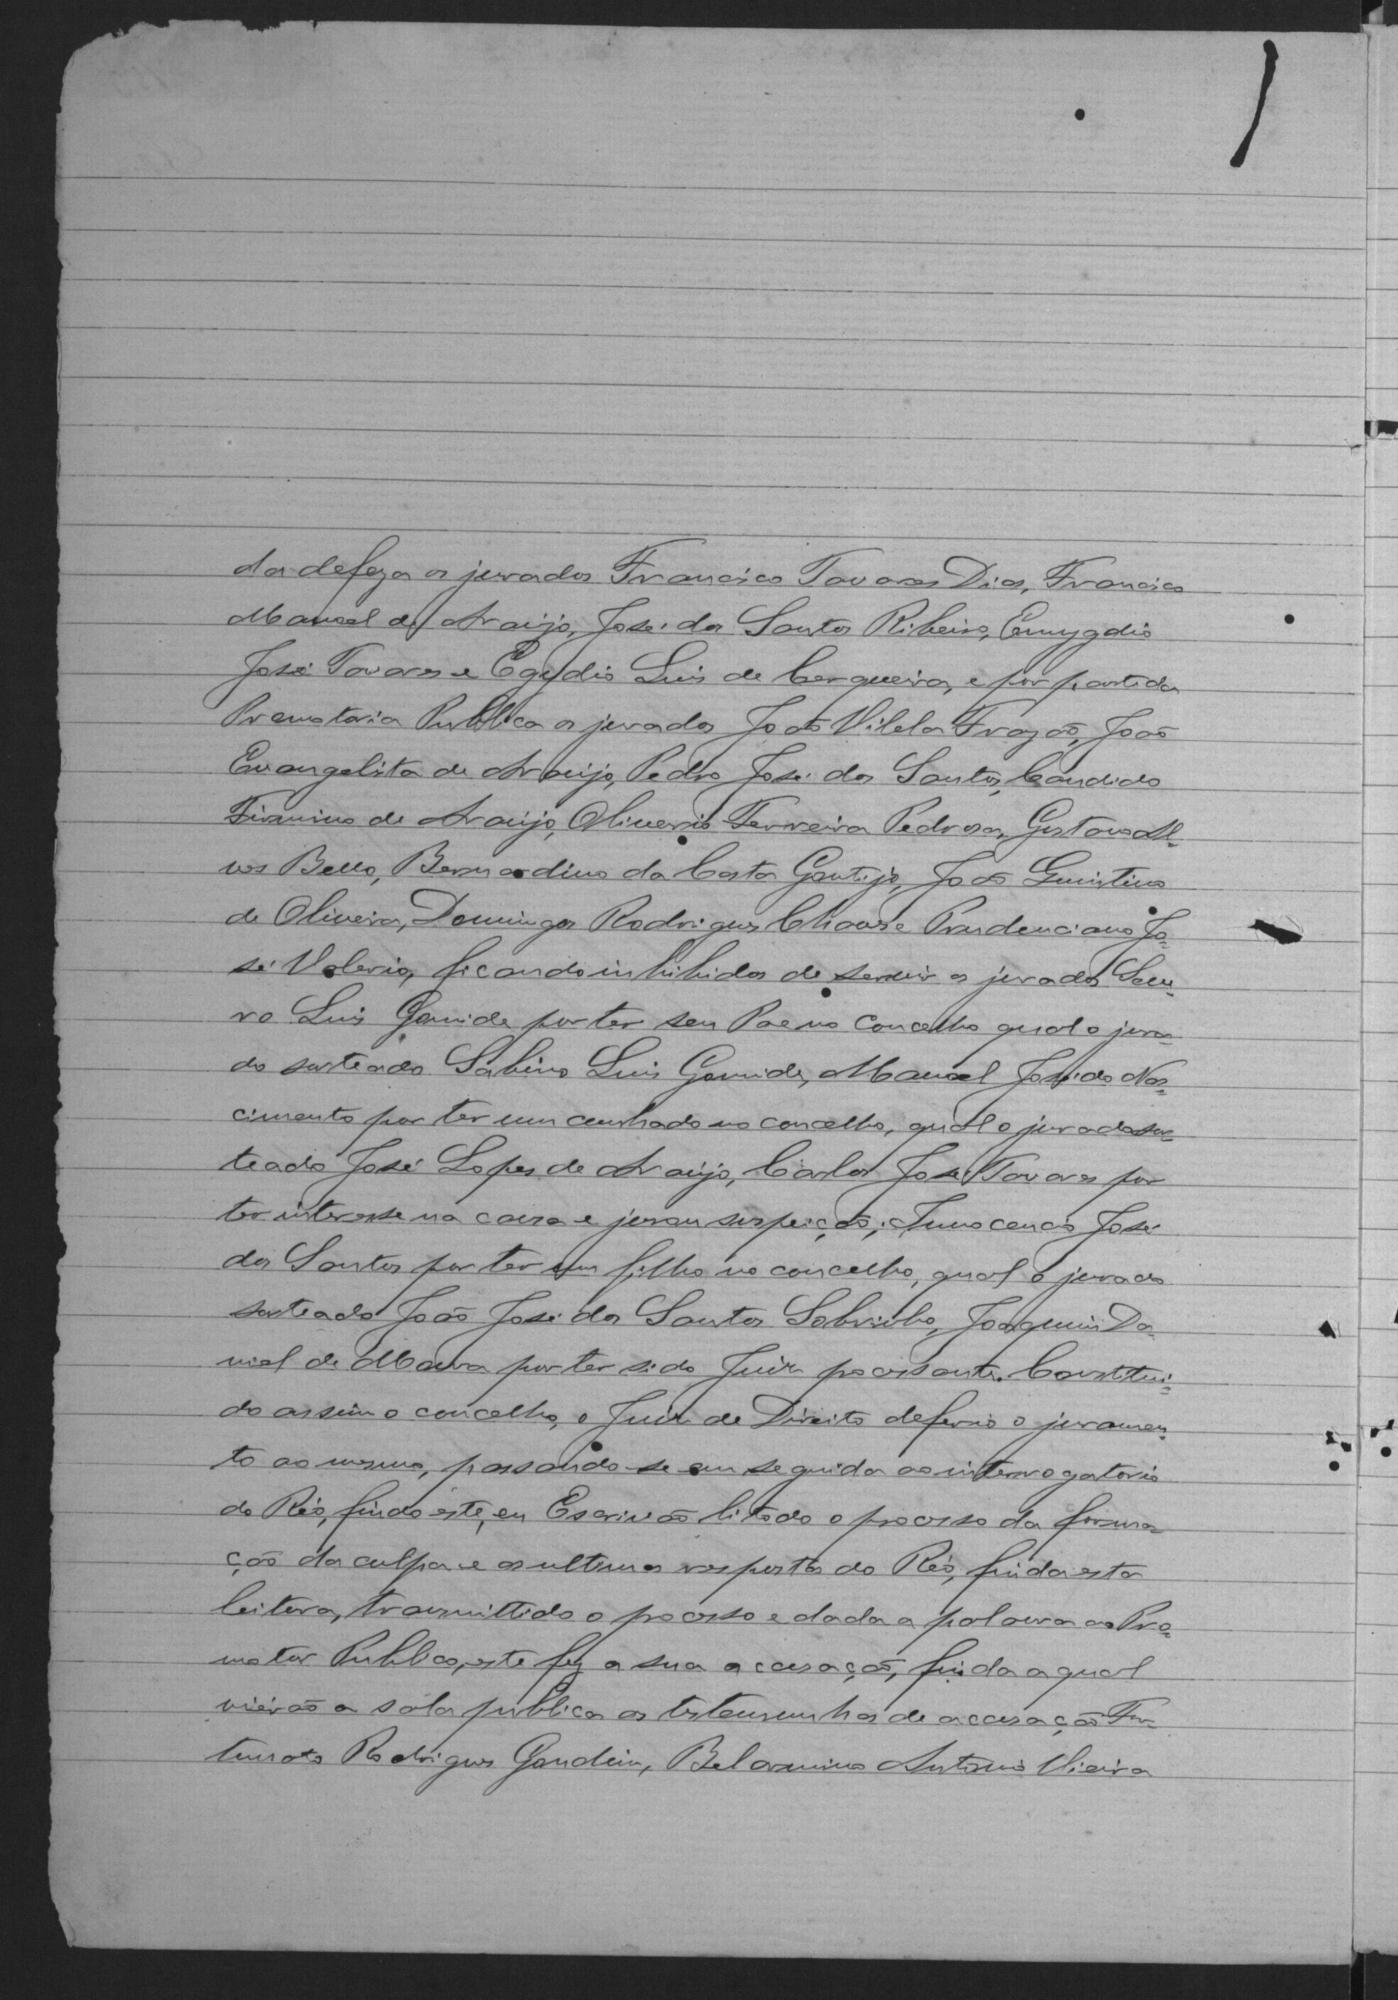 da defeza os jurados Francisco Tavares Dias, Francisco
Manoel de Araujo, José dos Santos Ribeiro, Emygdio
José Tavares e Egydio Luis de Cerqueira, e por parte da
Promotoria Publica os jurados João Vilela Frazaõ, João
Evangelista de Araujo, Pedro José dos Santos, Candido
Firmino de Araujo, Oliverio Ferreira Pedrosa, Gustavo Al-
ves Bello, Bernardino da Costa Gontijo, João Quintino
de Oliveira, Domingos Rodrigues Chaves e Prudenciano Jo-
sé Valerio, ficando inhibidos de servir os jurados
Luis Gomide por ter seu Pae no concelho qual o jura-
do sorteado Sabino Luis Gomide, Manoel José do Nas-
cimento por ter um cunhado no concelho, qual o jurado sor-
teado José Lopes de Araujo, Carlos José Tavares por
ter interesse na causa e jurou suspeiçaõ; Innocencio José
dos Santos por ter um filho no concelho, qual o jurado
sorteado João José dos Santos Sobrinho, Joaquim Da-
niel de Moura por ter sido Juiz processante. Constitui-
do assim o concelho, o Juiz de Direito deferio o juramen-
to ao mesmo, passando-se em seguida ao interrogatorio
do Réo, findo este, eu Escrivaõ li todo o processo da forma-
çaõ da culpa e as ultimas respostas do Réo, finda esta
leitura, transmittido o processo e dada a palavra ao Pro-
motor Publico, este fez a sua accusaçaõ, finda a qual
vieraõ a sala publica as testemunhas de accusaçaõ For-
tunato Rodrigues Gondim, Belarmino Antonio Vieira